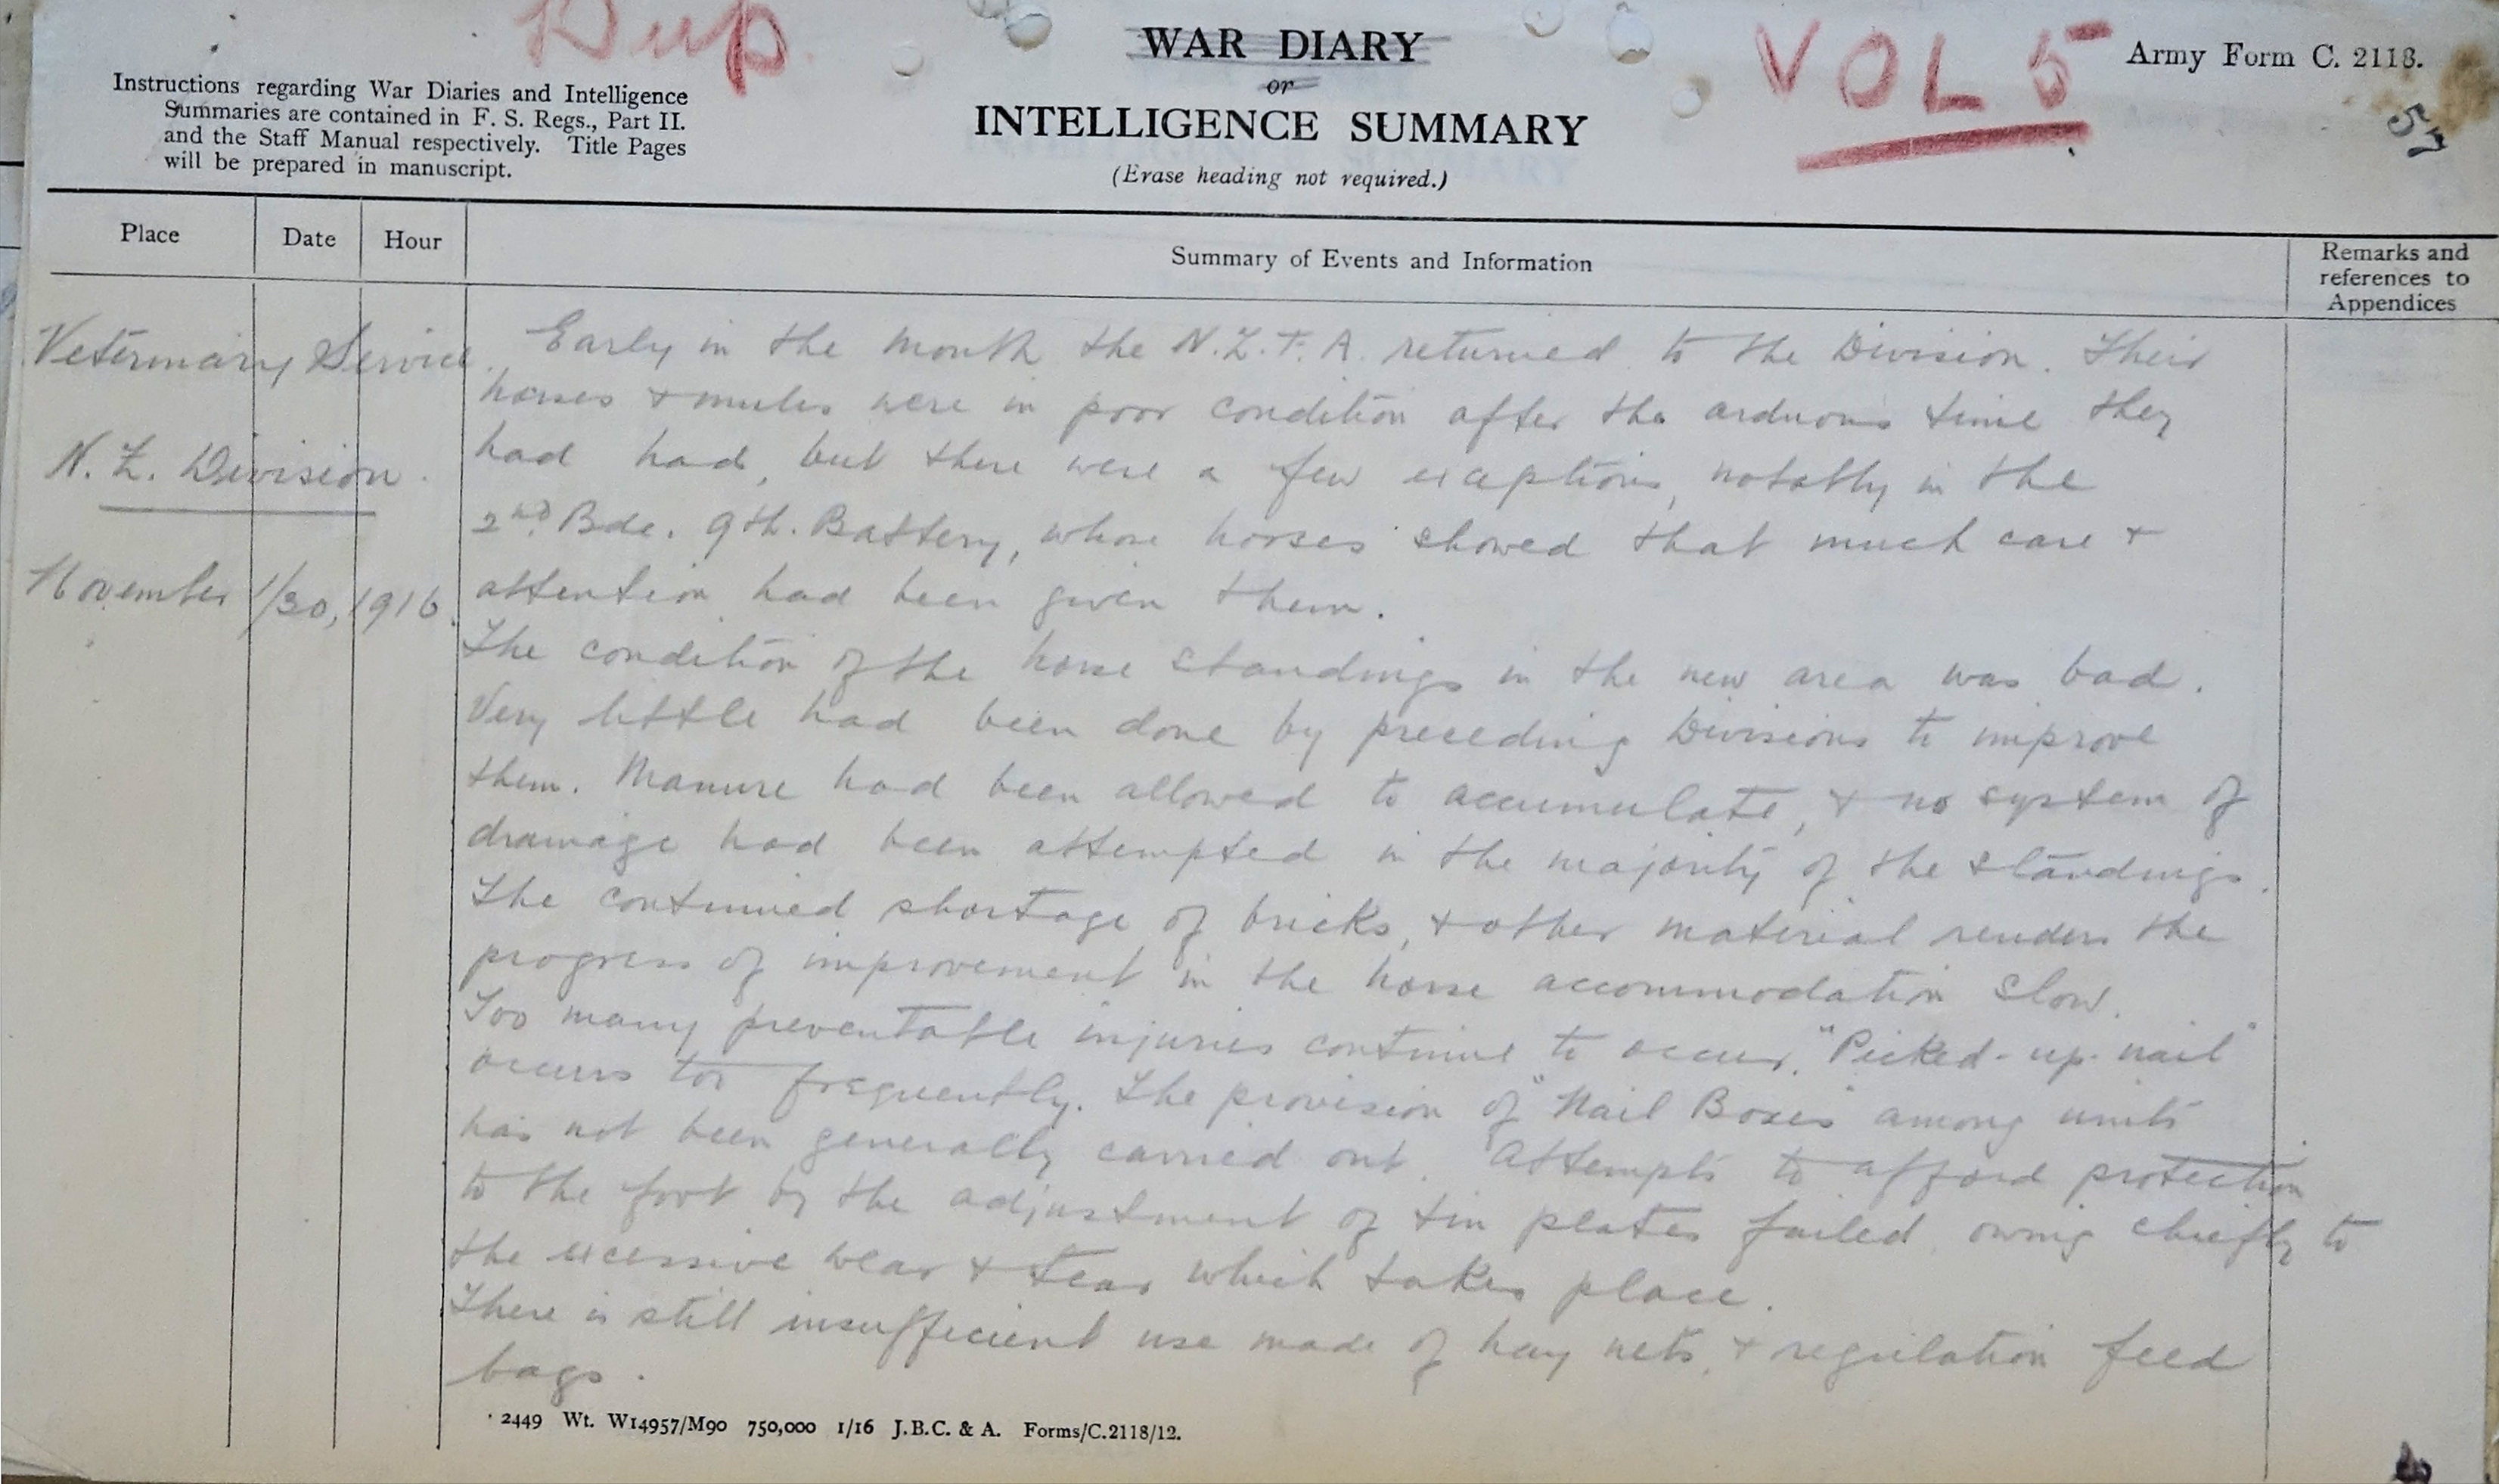 Dup.
WAR DIARY
or
INTELLIGENCE SUMMARY
(Erase heading not required.)
VOL 5
Army Form C. 2118.
57
Instructions regarding War Diaries and Intelligence
Summaries are contained in F. S. Regs., Part II.
and the Staff Manual respectively. Title Pages
will be prepared in manuscript.
Place
Date
Hour
Summary of Events and Information
Remarks and
references to
Appendices
Veterinary Service
N. Z. Division.
November 1/30, 1916.
Early in the month the N.Z.F.A. returned to the Division. Their
horses & mules were in poor condition after the arduous time they
had had, but there were a few exceptions, notably in the
2nd. Bde. 9th. Battery, whose horses showed that much care &
attention had been given them.
The condition of the horse standings in the new area was bad.
Very little had been done by preceding Divisions to improve
them. Manure had been allowed to accumulate, & no system of
drainage had been attempted in the majority of the standings.
The continued shortage of bricks, & other material renders the
progress of improvement in the horse accommodation slow.
Too many preventable injuries continue to occur. "Picked-up-nail"
occurs too frequently. The provision of "Nail Boxes" among units
has not been generally carried out. Attempts to afford protection
to the foot by the adjustment of tin plates failed, owing chiefly to
the excessive wear & tear which takes place.
There is still insufficient use made of hay nets, & regulation feed
bags.
2449 Wt. W14957/M90 750,000 1/16 J.B.C. & A. Forms/C.2118/12.